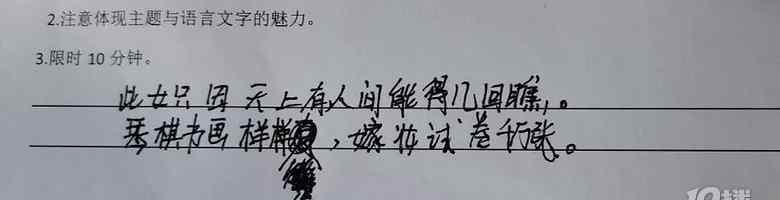 2.注意体现主题与语言文字的魅力。
3.限时10分钟。
此女只因天上有,人间能得几回瞧。
琴棋书画样样,嫁妆试卷千万张。